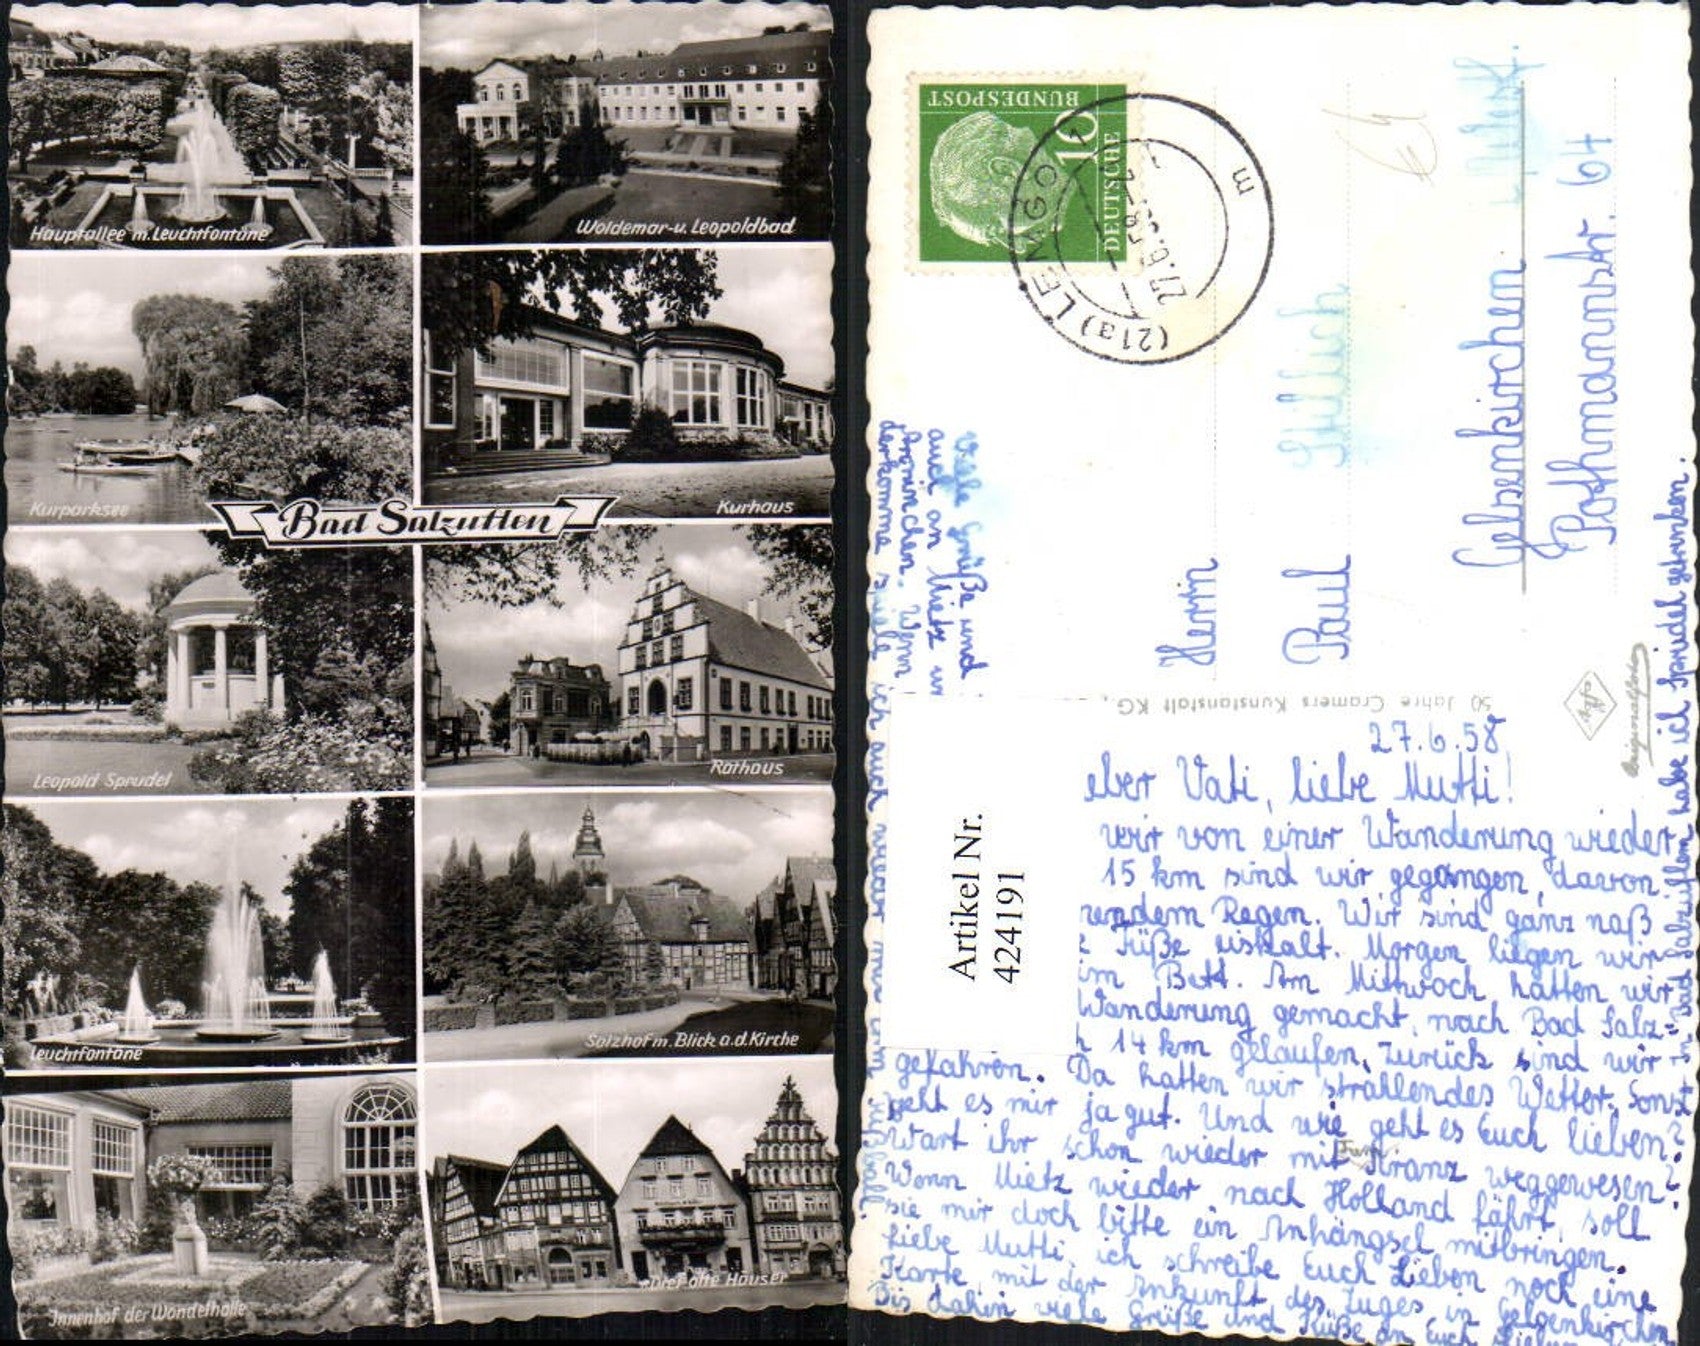 Hauptallee m. Leuchtfontäne
Woldemar- u. Leopoldbad
Kurparksee
Kurhaus
Bad Salzuflen
Leopold Sprudel
Rathaus
Leuchtfontäne
Salzhof m. Blick a. d. Kirche
Innenhof der Wandelhalle
Drei alte Häuser
DEUTSCHE
BUNDESPOST
10
(21a) LEMGO 1
27.6.58
m
Herrn
Paul Stillich
Gelsenkirchen
Pothmannstr. 64
50 Jahre Cramers Kunstanstalt KG.,
Agfa
Artikel Nr.
424191
27.6.58
eber Vati, liebe Mutti!
wir von einer Wanderung wieder
15 km sind wir gegangen, davon
Regen. Wir sind ganz naß
Füße eiskalt. Morgen liegen wir
im Bett. Am Mittwoch hatten wir
Wanderung gemacht, nach Bad Salz=
14 km gelaufen, zurück sind wir
gefahren. Da hatten wir strahlendes Wetter. Sonst
geht es mir ja gut. Und wie geht es Euch lieben?
Wart ihr schon wieder mit Kranz weggewesen?
Wenn Mietz wieder nach Holland fährt, soll
sie mir doch bitte ein Anhängsel mitbringen.
Liebe Mutti, ich schreibe Euch Lieben noch eine
Karte, mit der Ankunft des Zuges in Gelsenkirchen.
Bis dahin viele Grüße und Küße an Euch Lieben
Viele Grüße und
auch an Mietz
Brominchen. Wenn
spiele ich auch
Fußball.
In Bad Salzuflen habe ich Sprudel getrunken.